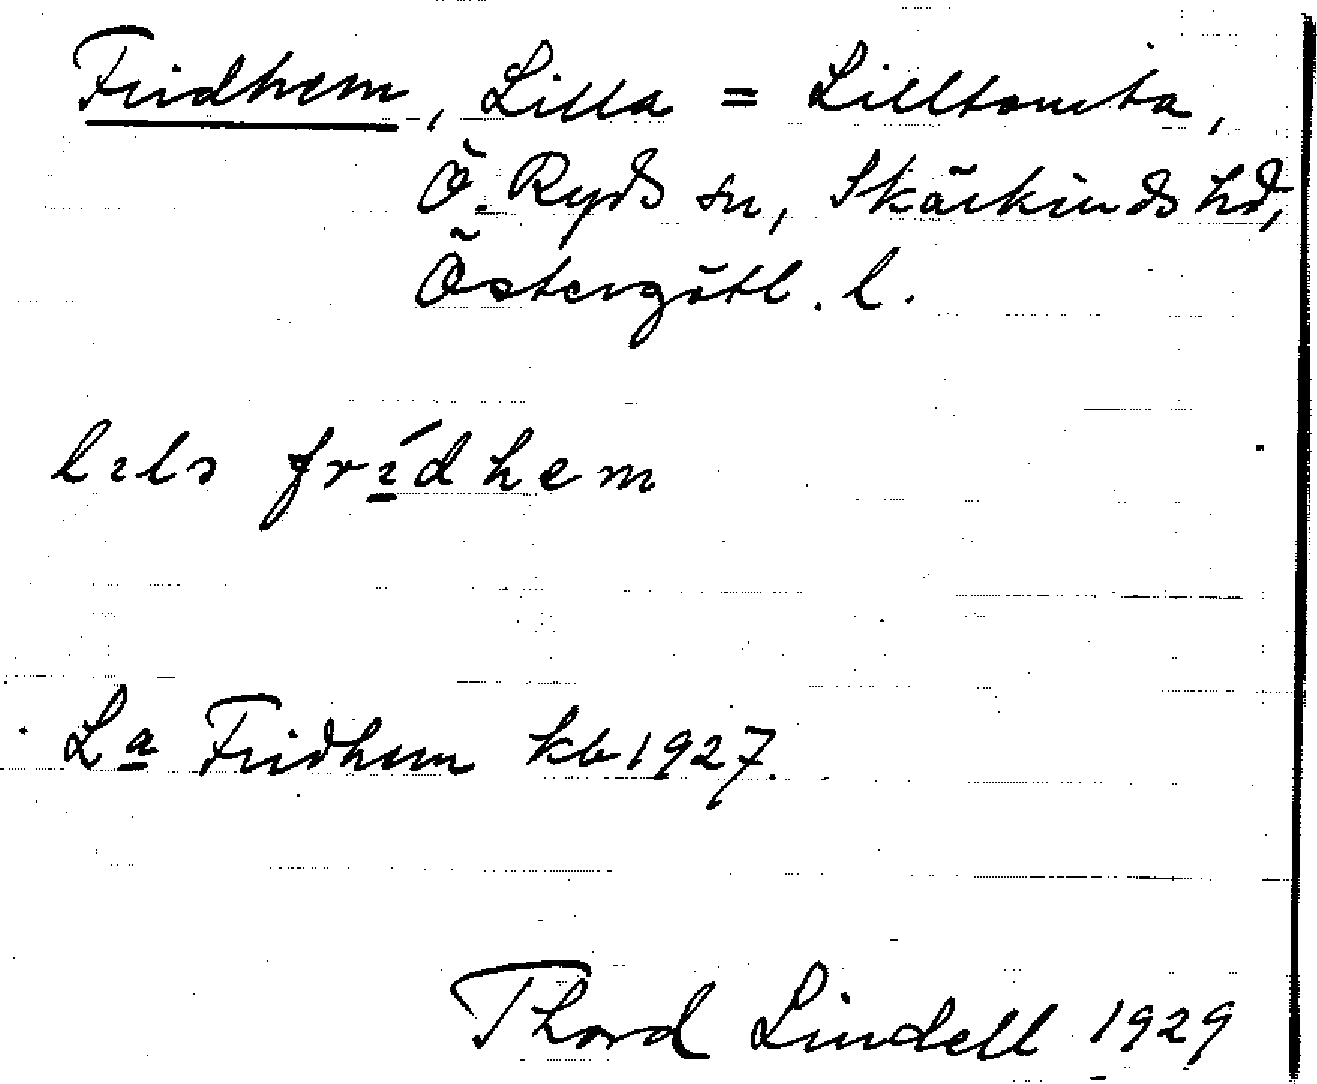 Fridhem, Lilla = Lilltomta,
Ö. Ryds sn, Skärkinds hd,
Östergötl. l.
lɩlɩ frɩ́dhem
La Fridhem kb 1927.
Thord Lindell 1929